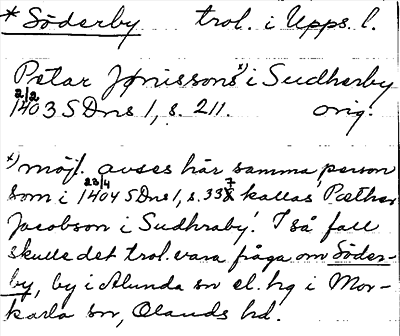 * Söderby trol. i Upps. l.
Petar Jønissons x) i Sudherby
2/2
1403 SDns 1, s. 211. orig.
x) möjl. avses här samma person
som i 23/4 1404 SDns 1, s. 337 kallas Pæther
Jacobson i Sudhraby! I så fall
skulle det trol. vara fråga om Söder-
by, by i Alunda sn el. hg i Mor-
karla sn, Olands hd.